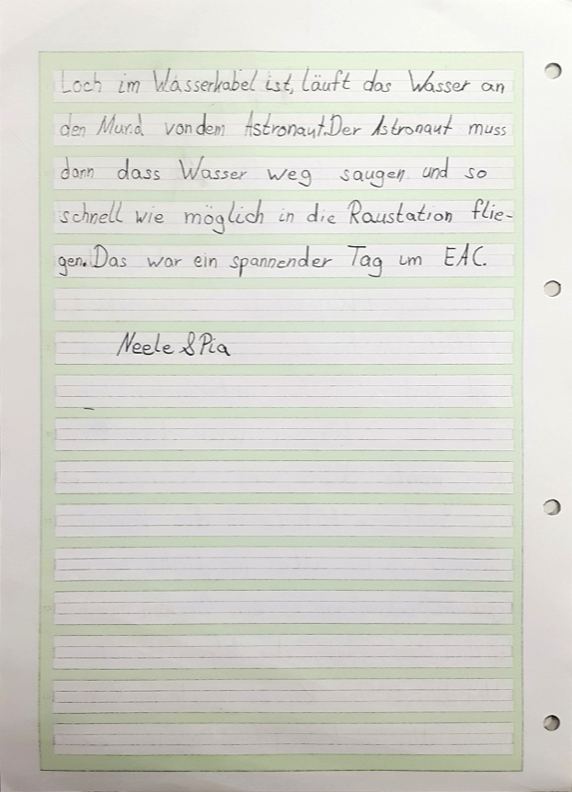 Loch im Wasserkabel ist, läuft das Wasser an
den Mund von dem Astronaut. Der Astronaut muss
dann dass Wasser weg saugen und so
schnell wie möglich in die Raustation flie-
gen. Das war ein spannender Tag im EAC.
Neele & Pia